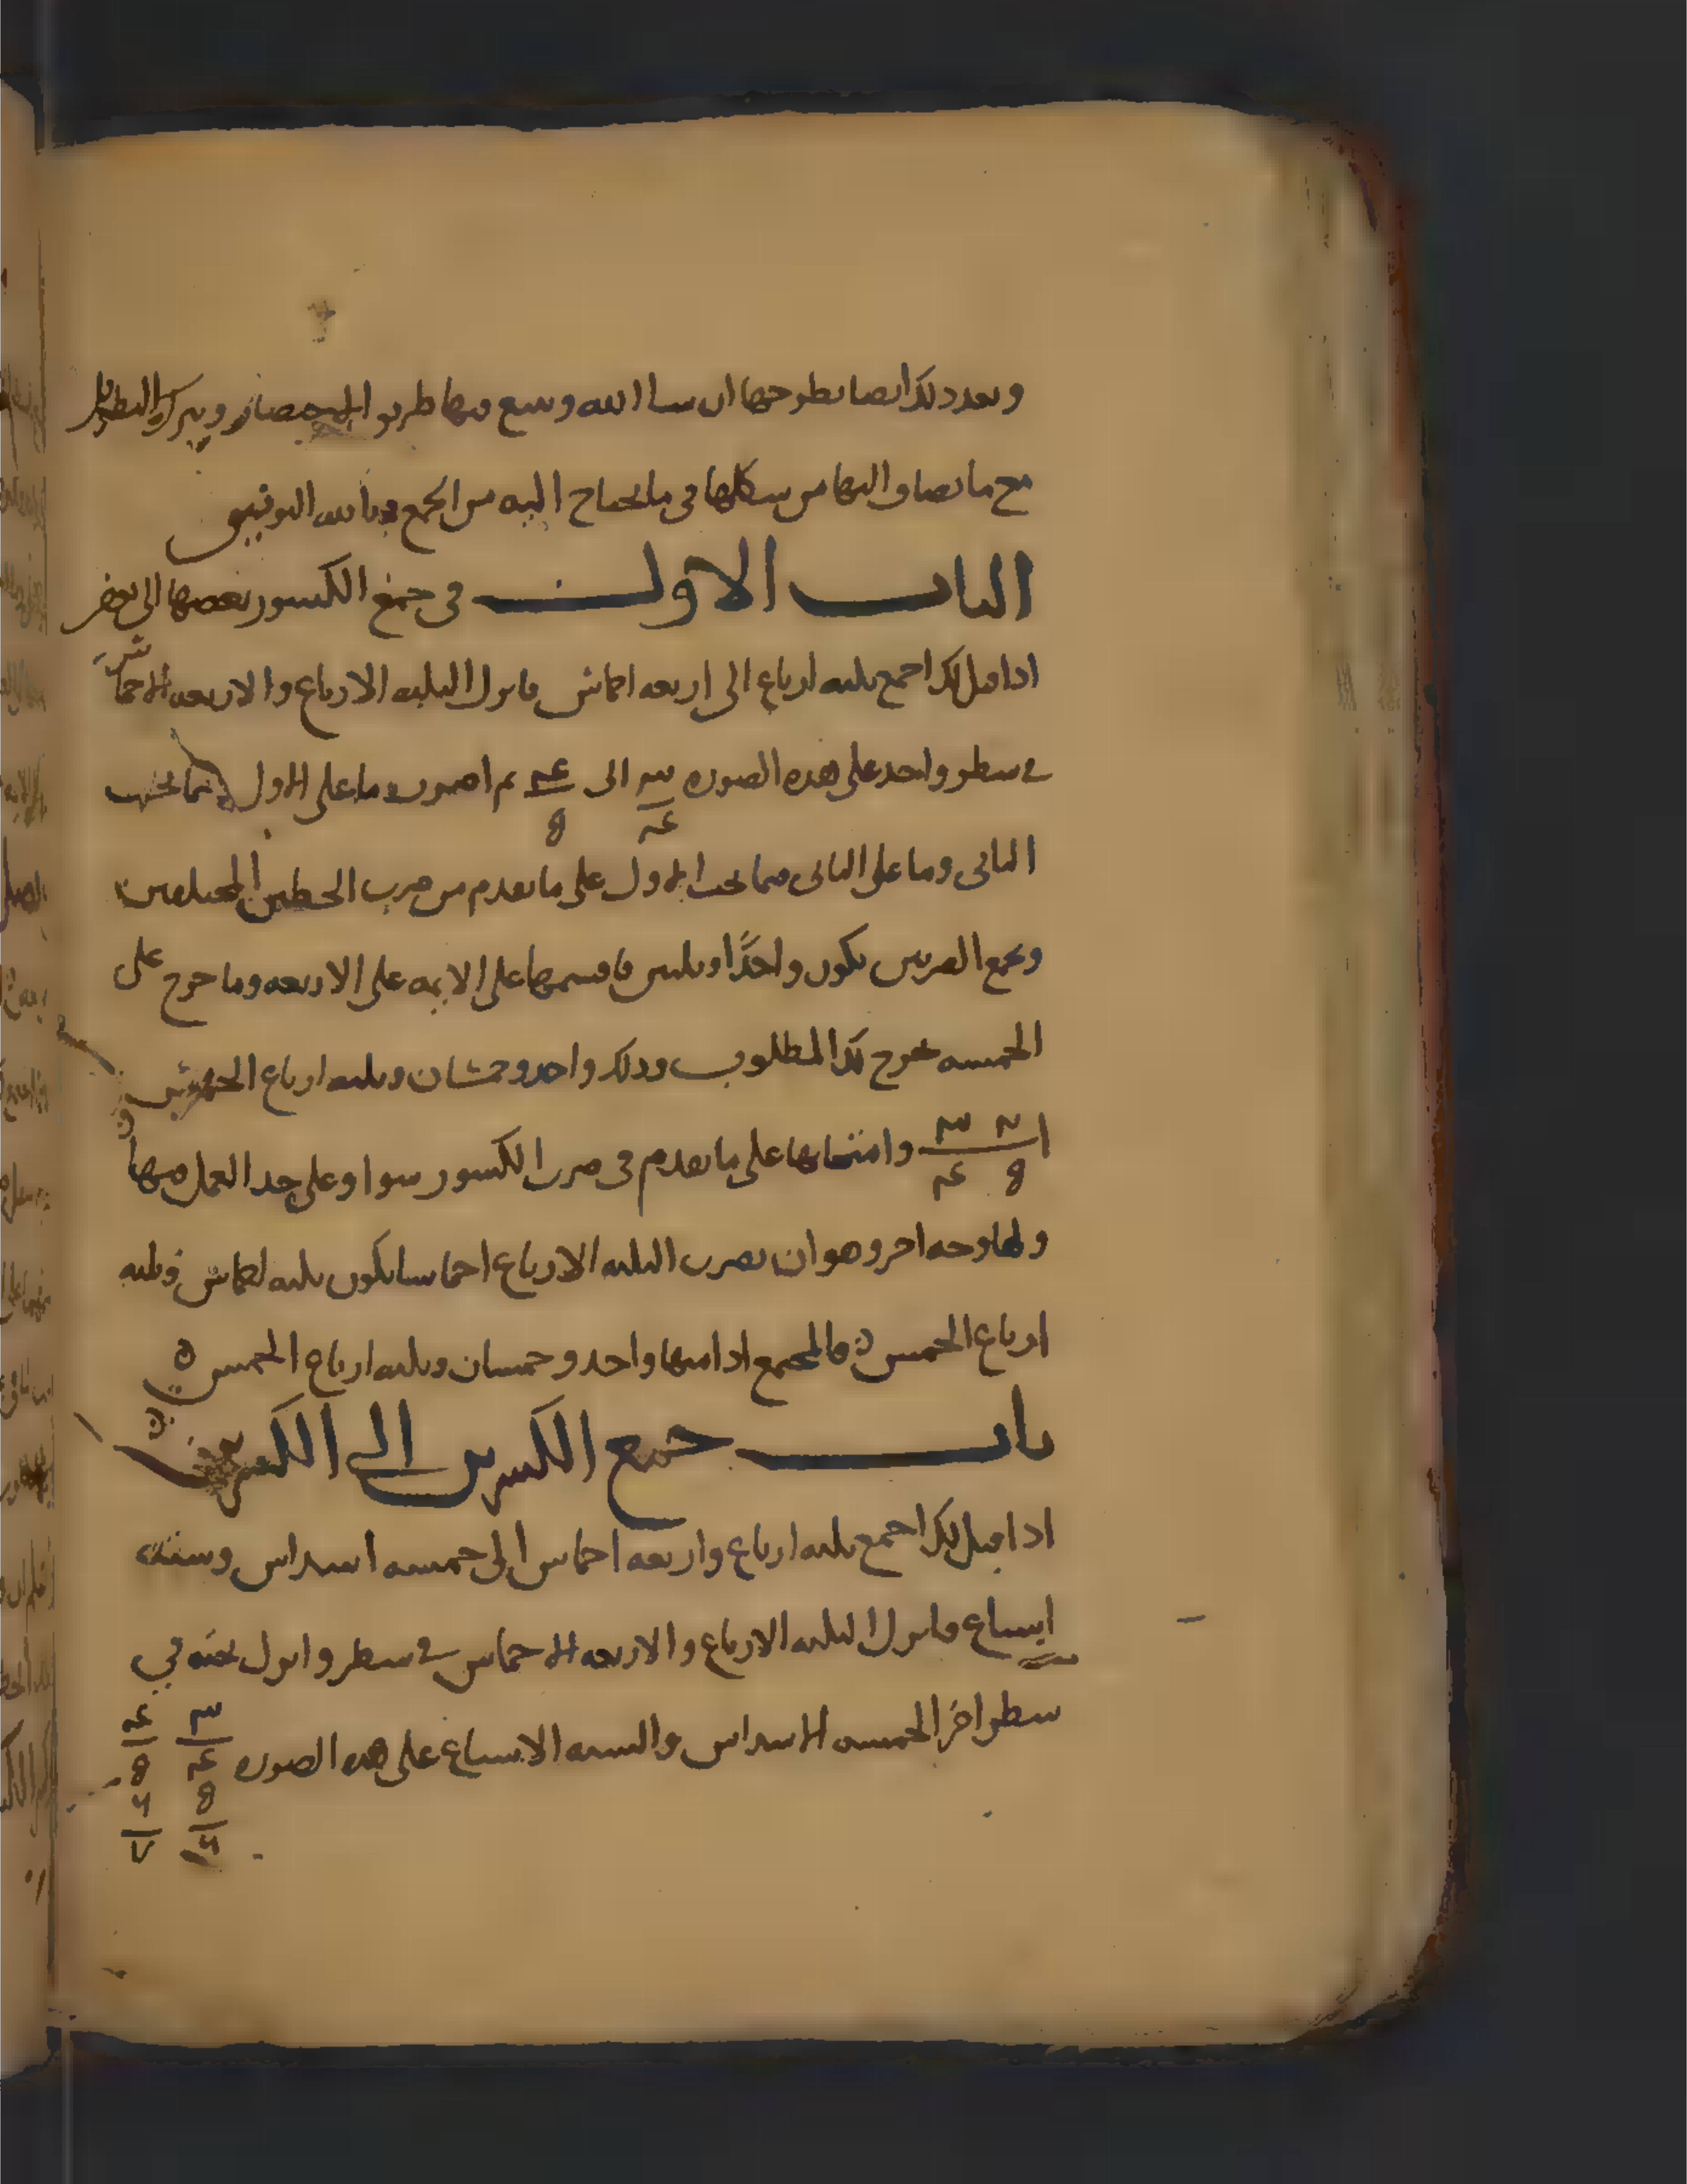 وبعد ذلك ايضا بطرحها ان شا الله ونتبع فيها طريق الاختصار ونترك التطويل
مع ما يضاف اليها من شكلها في ما يحتاج اليه من الجمع وبالله التوفيق
الباب الاول في جمع الكسور بعضها الى بعض
اذا قيل لك اجمع ثلثه ارباع الى اربعه اخماس فانزل الثلثه الارباع والاربعه الاخماس
في سطر واحد على هذه الصوره ٣/٤ الى ٤/٥ ثم اضرب ما على الاول فيما تحت
الثاني وما على الثاني فيما تحت الاول على ما تقدم من ضرب الخطين المختلفين
وتجمع الضربين يكون واحدًا وثلثين فاقسمها على الايمه على الاربعه وما خرج على
الخمسه يخرج لك المطلوب وذلك واحد وخمسان وثلثه ارباع الخمس
١ ٢ ٣ / ٥ ٤ وامتحانها على ما تقدم في ضرب الكسور سوا وعلى حد العمل فيها
ولها وجه اخر وهو ان تضرب الثلثه الارباع اخماسا يكون ثلثه اخماس وثلثه
ارباع الخمس فالمجتمع واحد وخمسان وثلثه ارباع الخمس
باب جمع الكسرين الى الكسرين
اذا قيل لك اجمع ثلثه ارباع واربعه اخماس الى خمسه اسداس وسته
اسباع فانزل الثلثه الارباع والاربعه الاخماس في سطر وانزل تحته في
سطر اخر الخمسه الاسداس والسته الاسباع على هذه الصوره ٣/٤ ٤/٥
٥/٦ ٦/٧